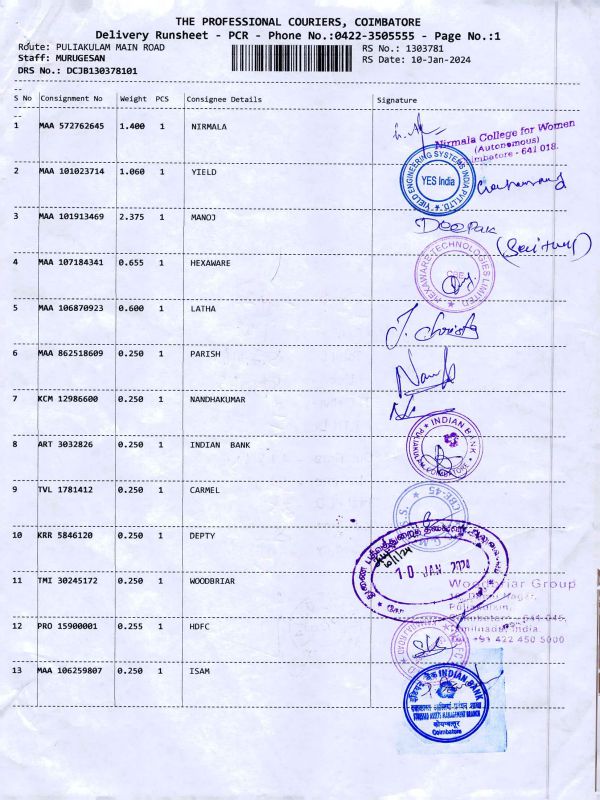 THE PROFESSIONAL COURIERS, COIMBATORE
Delivery Runsheet - PCR - Phone No.:0422-3505555 - Page No.:1
Route: PULIAKULAM MAIN ROAD RS No.: 1303781
Staff: MURUGESAN RS Date: 10-Jan-2024
DRS No.: DCJB130378101
S No Consignment No Weight PCS Consignee Details Signature
1 MAA 572762645 1.400 1 NIRMALA
Nirmala College for Women
(Autonomous)
Coimbatore - 641 018.
2 MAA 101023714 1.060 1 YIELD
YIELD ENGINEERING SYSTEMS INDIA PVT.LTD.
YES India
3 MAA 101913469 2.375 1 MANOJ
Deepak
4 MAA 107184341 0.655 1 HEXAWARE
HEXAWARE TECHNOLOGIES LIMITED
CBE
5 MAA 106870923 0.600 1 LATHA
J. Christy
6 MAA 862518609 0.250 1 PARISH
7 KCM 12986600 0.250 1 NANDHAKUMAR
8 ART 3032826 0.250 1 INDIAN BANK
INDIAN BANK
COIMBATORE
9 TVL 1781412 0.250 1 CARMEL
CBE-45
10 KRR 5846120 0.250 1 DEPTY
10 JAN 2024
11 TMI 30245172 0.250 1 WOODBRIAR
Woodbriar Group
Puliakulam,
Coimbatore - 641 045,
Tamilnadu, India.
Tel +91 422 450 5000
12 PRO 15900001 0.255 1 HDFC
13 MAA 106259807 0.250 1 ISAM
इंडियन बैंक INDIAN BANK
STRESSED ASSETS MANAGEMENT BRANCH
कोयम्बत्तूर
Coimbatore